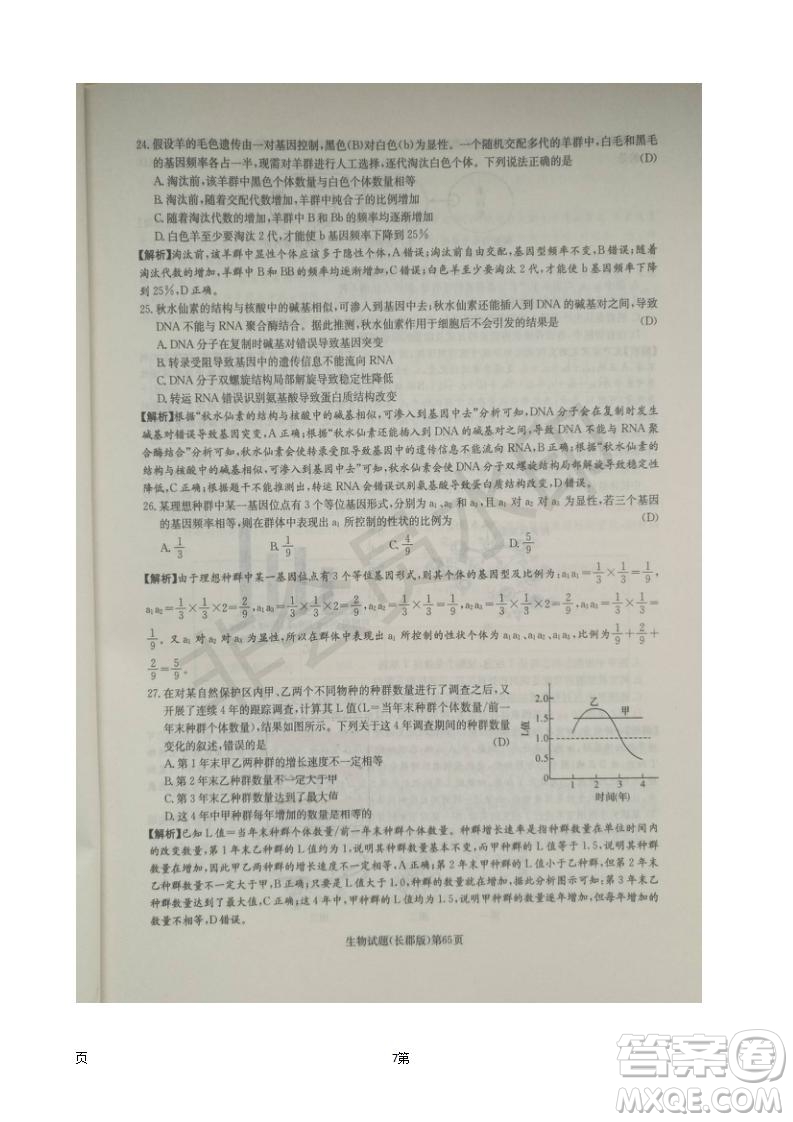 24. 假设羊的毛色遗传由一对基因控制,黑色(B)对白色(b)为显性。一个随机交配多代的羊群中,白毛和黑毛
的基因频率各占一半,现需对羊群进行人工选择,逐代淘汰白色个体。下列说法正确的是 (D)
A. 淘汰前,该羊群中黑色个体数量与白色个体数量相等
B. 淘汰前,随着交配代数增加,羊群中纯合子的比例增加
C. 随着淘汰代数的增加,羊群中 B和 Bb 的频率均逐渐增加
D. 白色羊至少要淘汰 2 代,才能使 b 基因频率下降到 25%
【解析】淘汰前,该羊群中显性个体应该多于隐性个体,A 错误;淘汰前自由交配,基因型频率不变,B 错误;随着
淘汰代数的增加,羊群中 B 和 BB 的频率均逐渐增加,C 错误;白色羊至少要淘汰 2 代,才能使 b 基因频率下降
到 25%,D 正确。
25. 秋水仙素的结构与核酸中的碱基相似,可渗入到基因中去;秋水仙素还能插入到 DNA 的碱基对之间,导致
DNA 不能与 RNA 聚合酶结合。据此推测,秋水仙素作用于细胞后不会引发的结果是 (D)
A. DNA 分子在复制时碱基对错误导致基因突变
B. 转录受阻导致基因中的遗传信息不能流向 RNA
C. DNA 分子双螺旋结构局部解旋导致稳定性降低
D. 转运 RNA 错误识别氨基酸导致蛋白质结构改变
【解析】根据“秋水仙素的结构与核酸中的碱基相似,可渗入到基因中去”分析可知,DNA 分子会在复制时发生
碱基对错误导致基因突变,A 正确;根据“秋水仙素还能插入到 DNA 的碱基对之间,导致 DNA 不能与 RNA 聚
合酶结合”分析可知,秋水仙素会使转录受阻导致基因中的遗传信息不能流向 RNA,B 正确;根据“秋水仙素的
结构与核酸中的碱基相似,可渗入到基因中去”分析可知,秋水仙素会使 DNA 分子双螺旋结构局部解旋导致稳定性
降低,C 正确;根据题干不能得出,转运 RNA 会错误识别氨基酸导致蛋白质结构改变,D 错误。
26. 某理想种群中某一基因位点有 3 个等位基因形式,分别为 a₁、a₂ 和 a₃,且 a₁ 对 a₂ 对 a₃ 为显性,若三个基因
的基因频率相等,则在群体中表现出 a₁ 所控制的性状的比例为 (D)
A. 1/3 B. 1/9 C. 4/9 D. 5/9
【解析】由于理想种群中某一基因位点有 3 个等位基因形式,则其个体的基因型及比例为:a₁a₁=1/3×1/3=1/9,
a₁a₂=1/3×1/3×2=2/9,a₁a₃=1/3×1/3×2=2/9,a₂a₂=1/3×1/3=1/9,a₂a₃=1/3×1/3×2=2/9,a₃a₃=1/3×1/3=
1/9。又 a₁ 对 a₂ 对 a₃ 为显性,所以在群体中表现出 a₁ 所控制的性状个体为 a₁a₁、a₁a₂、a₁a₃,比例为1/9+2/9+
2/9=5/9。
27. 在对某自然保护区内甲、乙两个不同物种的种群数量进行了调查之后,又
开展了连续 4 年的跟踪调查,计算其 L 值(L=当年末种群个体数量/前一
年末种群个体数量),结果如图所示。下列关于这 4 年调查期间的种群数量
变化的叙述,错误的是 (D)
A. 第 1 年末甲乙两种群的增长速度不一定相等
B. 第 2 年末乙种群数量不一定大于甲
C. 第 3 年末乙种群数量达到了最大值
D. 这 4 年中甲种群每年增加的数量是相等的
L值
2.0
1.5
1.0
0.5
0
乙 甲
1 2 3 4
时间(年)
【解析】已知 L 值=当年末种群个体数量/前一年末种群个体数量。种群增长速率是指种群数量在单位时间内
的改变数量,第 1 年末乙种群的 L 值为 1,说明其种群数量基本不变,而甲种群的 L 值等于 1.5,说明其种群
数量在增加,因此甲乙两种群的增长速度不相等,A 正确;第 2 年末甲种群的 L 值小于乙种群,但是乙种群的
数量不一定大于甲,B 正确;只要是 L 值大于 1.0,种群数量都是在增加的,因此第 3 年末乙
种群数量达到了最大值,C 正确;这 4 年中,甲种群的 L 值始终等于 1.5,说明甲种群数量逐年增加,但每年增加的
数量不相等,D 错误。
生物试题(长郡版)第65页
非会员水印
页 7第
答案圈
MXQE.COM